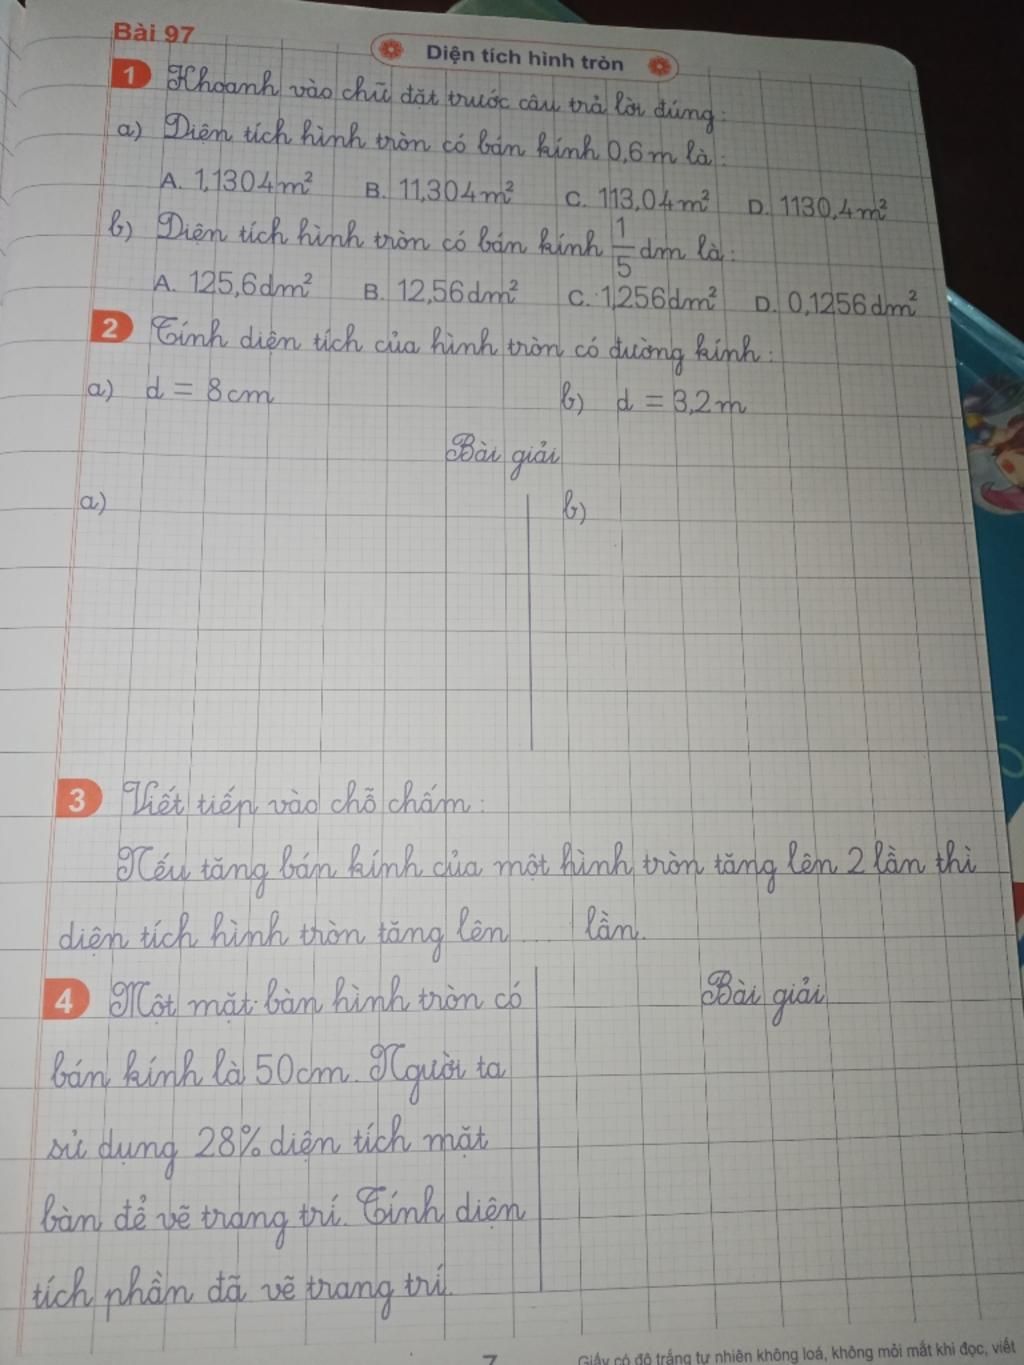 Bài 97
Diện tích hình tròn
1 Khoanh vào chữ đặt trước câu trả lời đúng:
a) Diện tích hình tròn có bán kính 0,6m là:
A. 1,1304m² B. 11,304m² C. 113,04m² D. 1130,4m²
b) Diện tích hình tròn có bán kính 1/5 dm là:
A. 125,6dm² B. 12,56dm² C. 1,256dm² D. 0,1256dm²
2 Tính diện tích của hình tròn có đường kính:
a) d = 8cm b) d = 3,2m
Bài giải
a) b)
3 Viết tiếp vào chỗ chấm:
Nếu tăng bán kính của một hình tròn tăng lên 2 lần thì
diện tích hình tròn tăng lên ... lần.
4 Một mặt bàn hình tròn có
bán kính là 50cm. Người ta
sử dụng 28% diện tích mặt
bàn để vẽ trang trí. Tính diện
tích phần đã vẽ trang trí.
Bài giải
7
Giấy có độ trắng tự nhiên không loá, không mỏi mắt khi đọc, viết